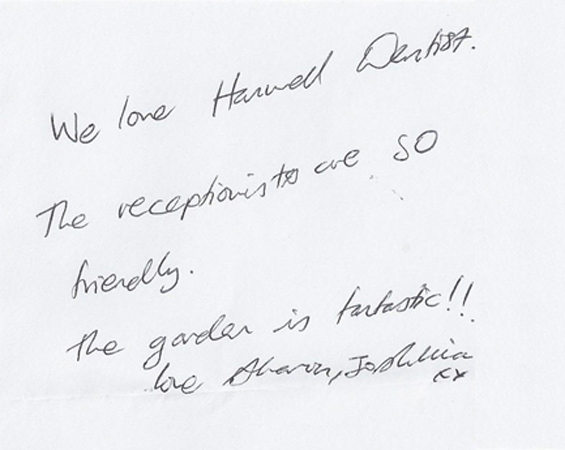 We love Harwell Dentist.
The receptionists are SO
friendly.
The garden is fantastic!!
love Sharon,
xx